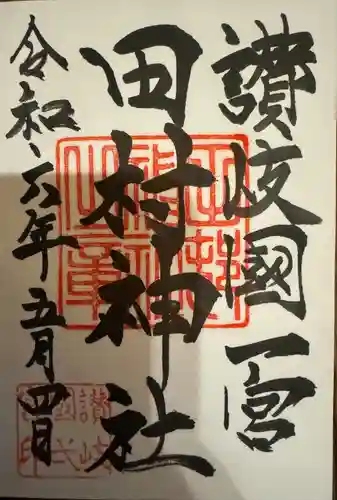 讃岐國一宮
田村神社
令和六年五月四日